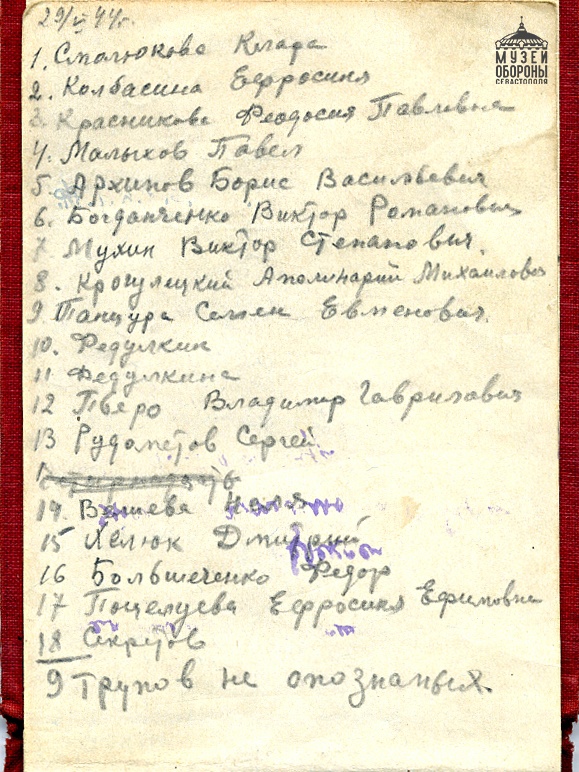 29/VI 44г.
МУЗЕЙ
ОБОРОНЫ
СЕВАСТОПОЛЯ
1. Смолюкова Клара
2. Колбасина Ефросиня
3. Красникова Феодосия Павловна
4. Малыхов Павел
5. Архипов Борис Васильевич
6. Богданченко Виктор Романович
7. Мухин Виктор Степанович.
8. Крогулецкий Аполинарий Михайлович
9. Панцура Семен Евменович.
10. Федулкин
11 Федулкина
12 Пверо Владимир Гаврилович
13 Рудометов Сергей
14. Надя
15 Дмитрий
16 Большеченко Федор
17 Поцелуева Ефросиня Ефимовна
18 Секретов
9 Трупов не опознаных